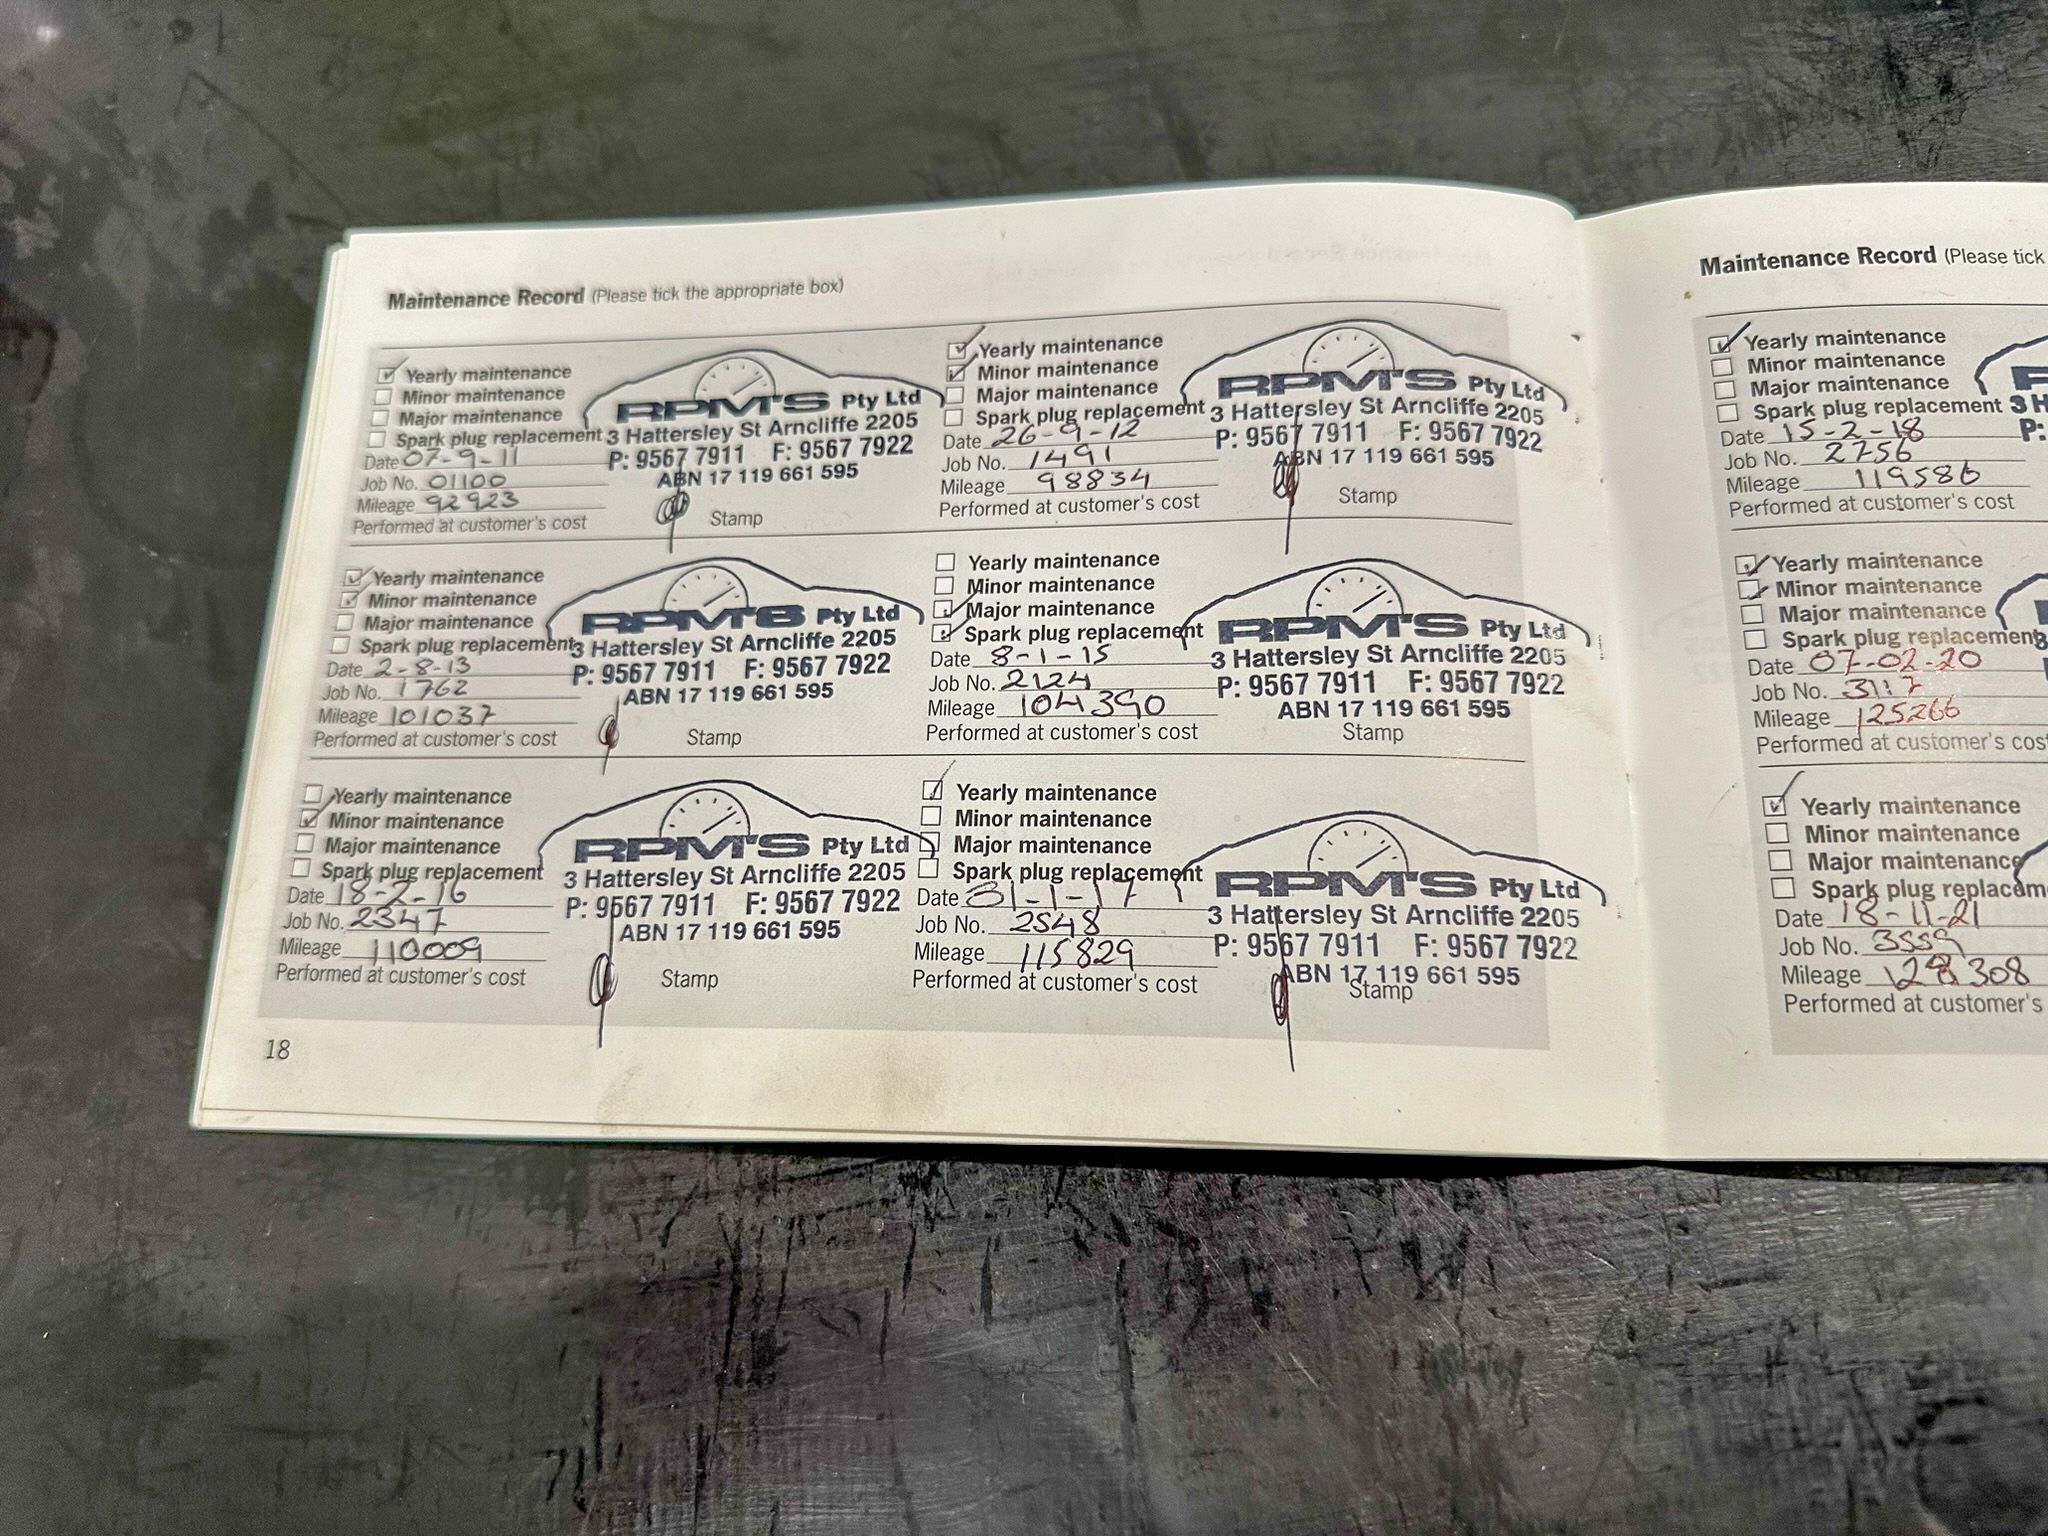 Maintenance Record (Please tick the appropriate box)
Yearly maintenance
Minor maintenance
Major maintenance
Spark plug replacement
Date 07-9-11
Job No. 01100
Mileage 92923
Performed at customer's cost
RPM'S Pty Ltd
3 Hattersley St Arncliffe 2205
P: 9567 7911 F: 9567 7922
ABN 17 119 661 595
Stamp
Yearly maintenance
Minor maintenance
Major maintenance
Spark plug replacement
Date 26-9-12
Job No. 1491
Mileage 98834
Performed at customer's cost
RPM'S Pty Ltd
3 Hattersley St Arncliffe 2205
P: 9567 7911 F: 9567 7922
ABN 17 119 661 595
Stamp
Yearly maintenance
Minor maintenance
Major maintenance
Spark plug replacement
Date 2-8-13
Job No. 1762
Mileage 101037
Performed at customer's cost
RPM'S Pty Ltd
3 Hattersley St Arncliffe 2205
P: 9567 7911 F: 9567 7922
ABN 17 119 661 595
Stamp
Yearly maintenance
Minor maintenance
Major maintenance
Spark plug replacement
Date 8-1-15
Job No. 2124
Mileage 104390
Performed at customer's cost
RPM'S Pty Ltd
3 Hattersley St Arncliffe 2205
P: 9567 7911 F: 9567 7922
ABN 17 119 661 595
Stamp
Yearly maintenance
Minor maintenance
Major maintenance
Spark plug replacement
Date 18-2-16
Job No. 2347
Mileage 110009
Performed at customer's cost
RPM'S Pty Ltd
3 Hattersley St Arncliffe 2205
P: 9567 7911 F: 9567 7922
ABN 17 119 661 595
Stamp
Yearly maintenance
Minor maintenance
Major maintenance
Spark plug replacement
Date 31-1-17
Job No. 2548
Mileage 115829
Performed at customer's cost
RPM'S Pty Ltd
3 Hattersley St Arncliffe 2205
P: 9567 7911 F: 9567 7922
ABN 17 119 661 595
Stamp
18
Maintenance Record (Please tick
Yearly maintenance
Minor maintenance
Major maintenance
Spark plug replacement
Date 15-2-18
Job No. 2756
Mileage 119586
Performed at customer's cost
3 H
P:
Yearly maintenance
Minor maintenance
Major maintenance
Spark plug replacement
Date 07-02-20
Job No.
Mileage 125266
Performed at customer's cost
Yearly maintenance
Minor maintenance
Major maintenance
Spark plug replacem
Date 18-11-21
Job No. 3559
Mileage 128308
Performed at customer's